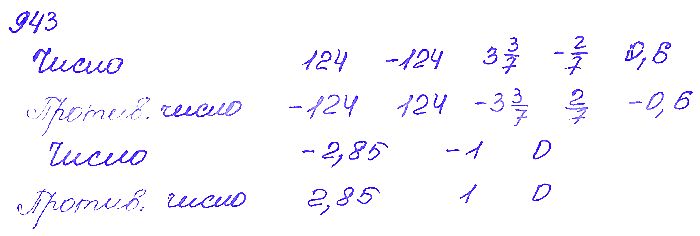 943
Число 124 -124 3 3/7 -2/7 0,6
Против. число -124 124 -3 3/7 2/7 -0,6
Число -2,85 -1 0
Против. число 2,85 1 0